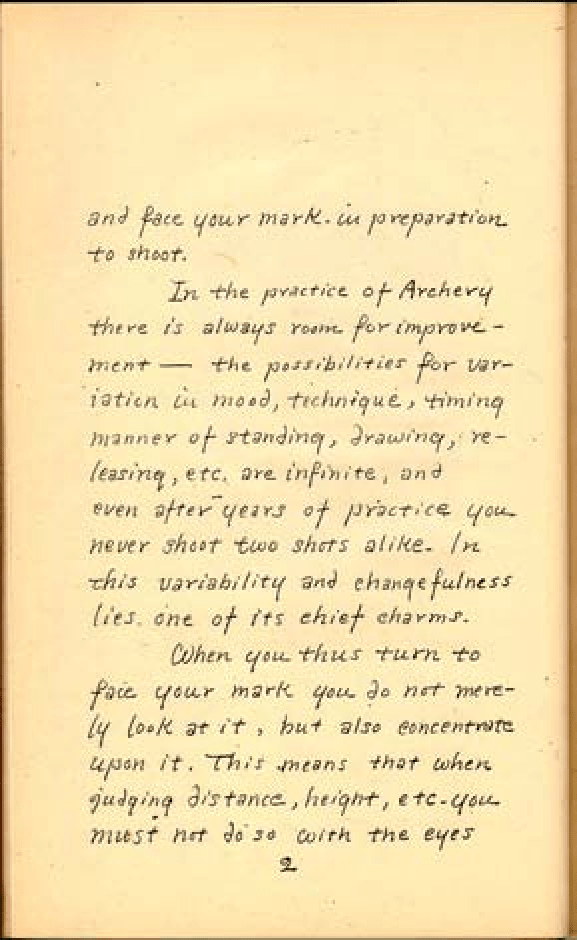 and face your mark. in preparation
to shoot.
In the practice of Archery
there is always room for improve-
ment — the possibilities for var-
iation in mood, technique, timing
manner of standing, drawing, re-
leasing, etc. are infinite, and
even after years of practice you
never shoot two shots alike. In
this variability and changefulness
lies. one of its chief charms.
When you thus turn to
face your mark you do not mere-
ly look at it, but also concentrate
upon it. This means that when
judging distance, height, etc. you
must not do so with the eyes
2